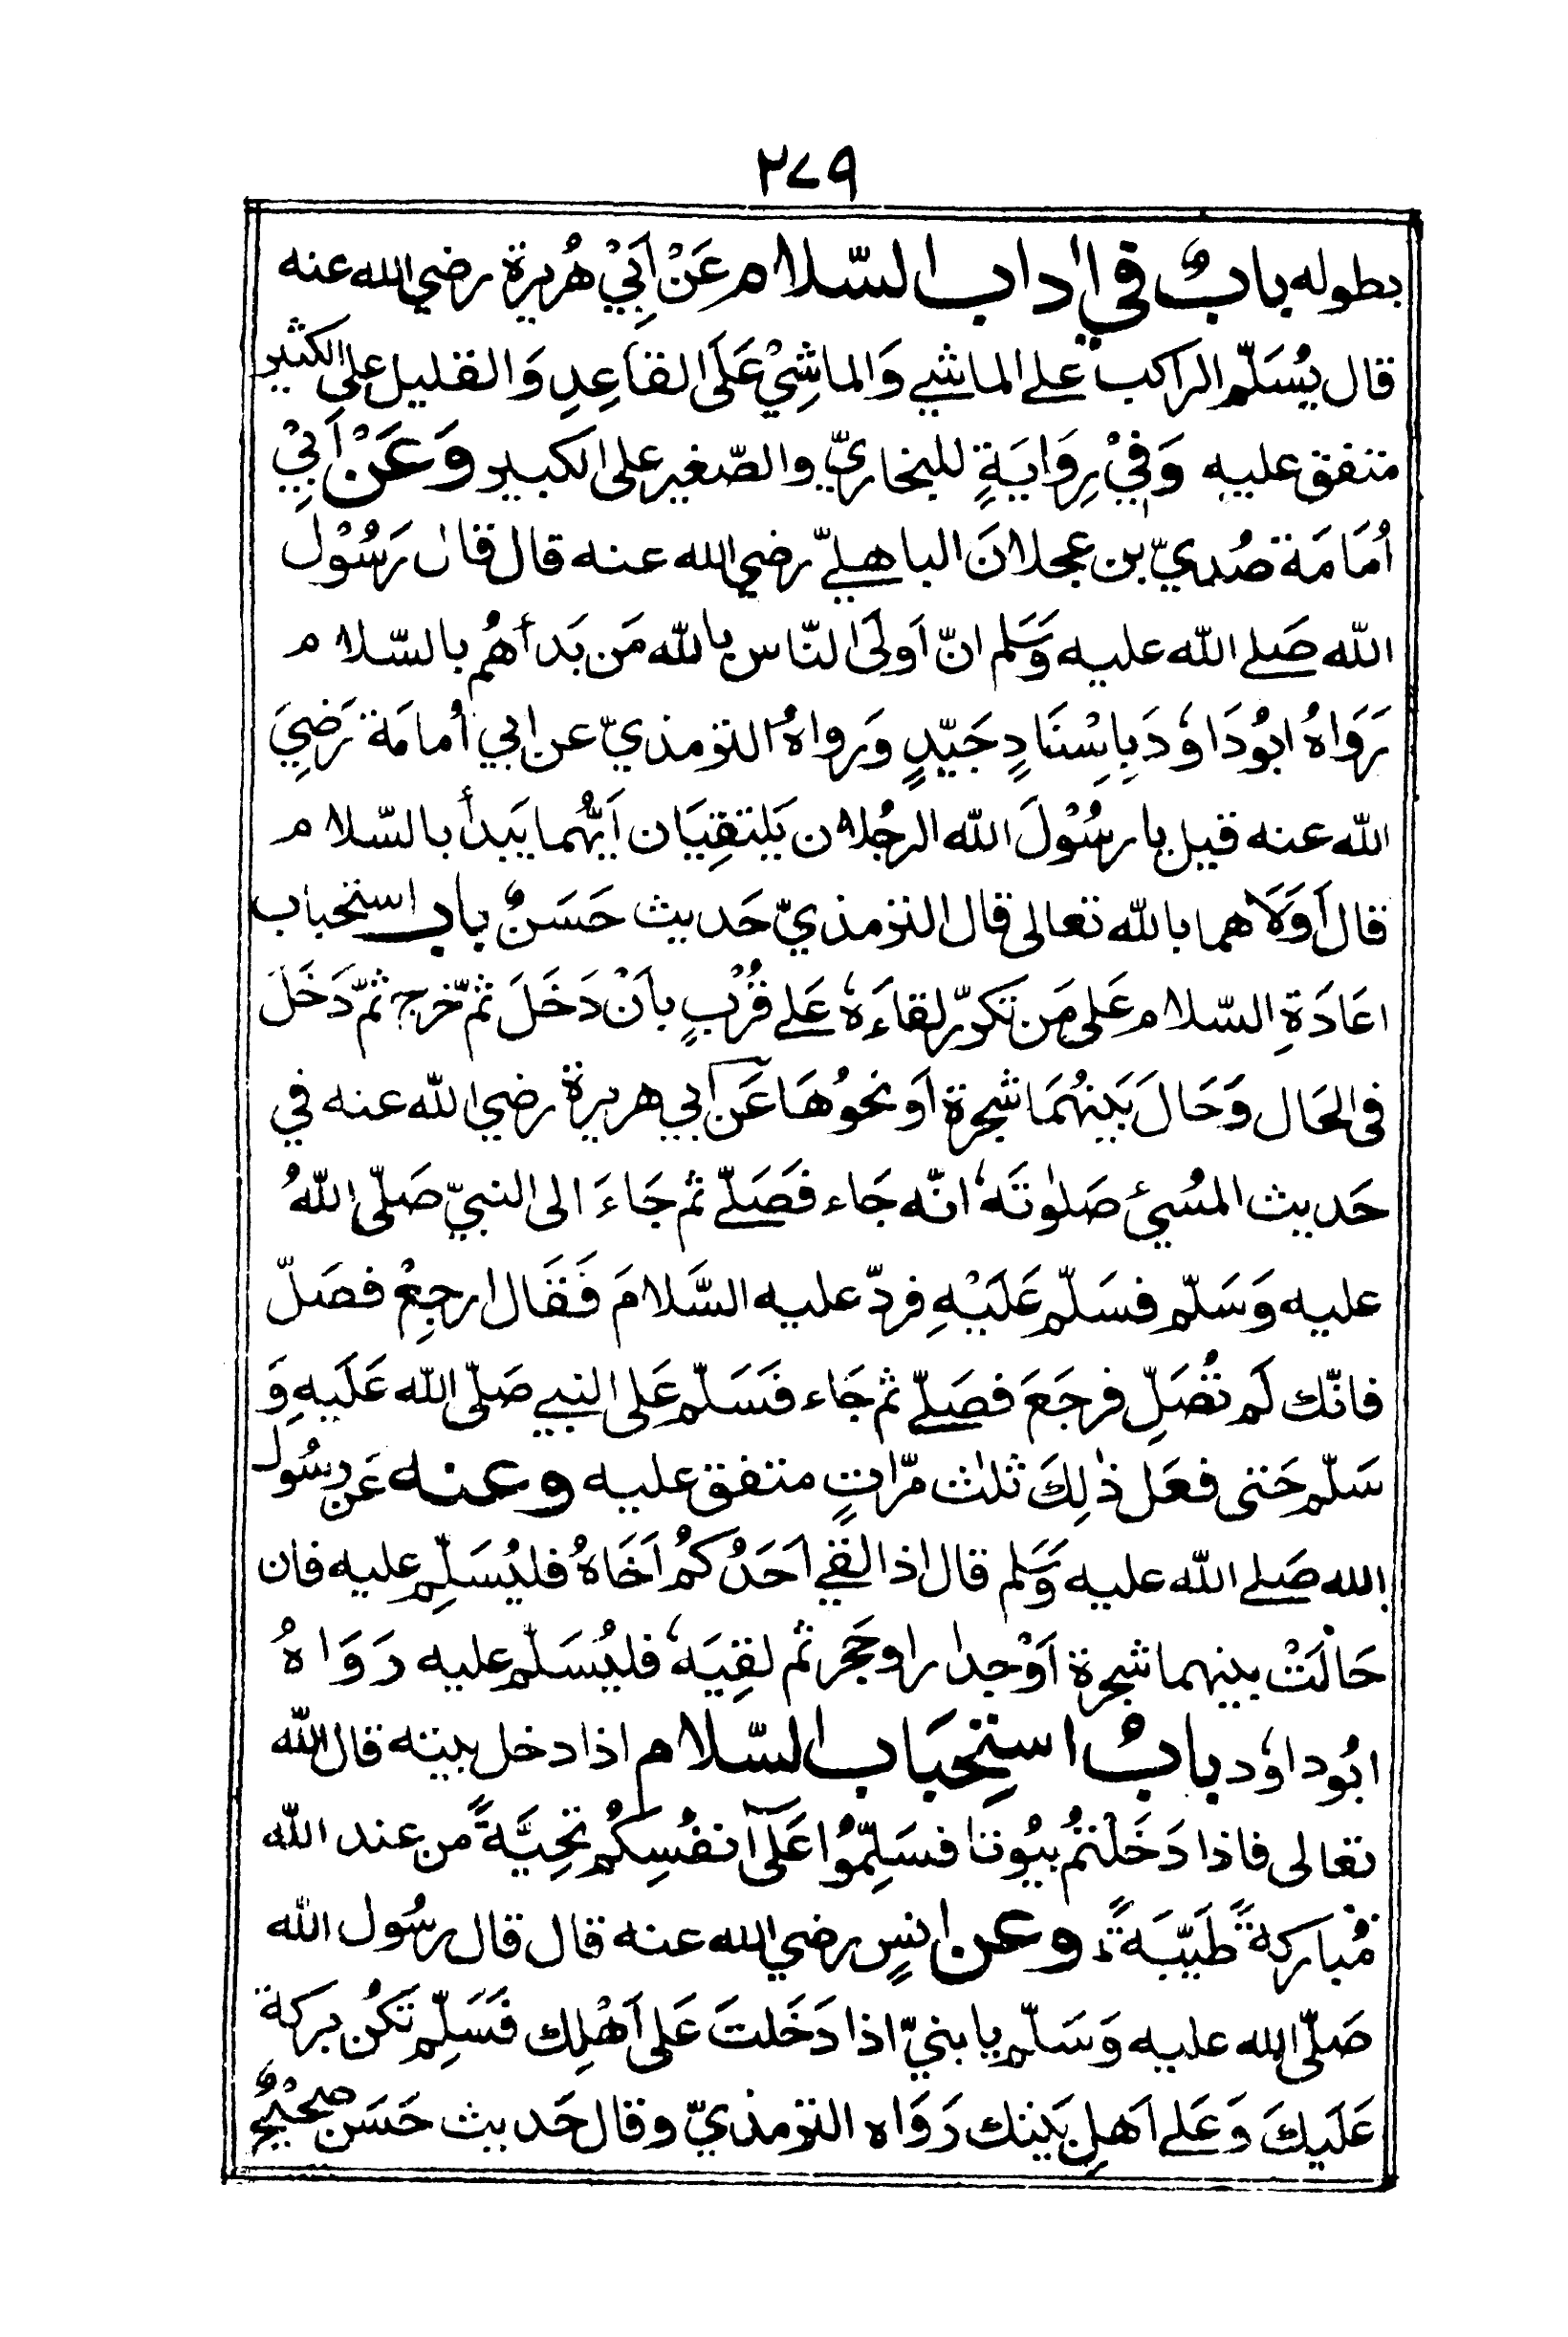 ٢٧٩
بطوله بابٌ في اٰداب السّلام عَنْ اَبِيْ هُريرة رضي الله عنه
قال يُسَلّم الراكب على الماشي وَالماشِيْ عَلَى القاعِدِ وَالقليل على الكثير
متفق عليه وَفِيْ رِوَايَةٍ للبخاريّ والصّغير على الكبير وَعَنْ اَبِيْ
اُمَامَة صُديّ بن عجلانَ الباهليّ رضي الله عنه قال قال رَسُوْل
الله صَلى الله عليه وَسَلم انّ اَولَى النّاس بالله مَن بَدأهُم بالسّلام
رَوَاهُ ابُودَاوٗدَ بِاِسْنَادٍ جَيّدٍ وَرواهُ الترمذيّ عن ابي اُمامَة رَضِيَ
الله عنه قيل يا رسُوْلَ الله الرجُلان يَلتقِيَان اَيّهُما يَبدأ بالسّلام
قال اَوَلَاهما بالله تعالى قال الترمذيّ حَديث حَسَنٌ باب استحباب
اعَادَةِ السّلام عَلى مَن تَكرّر لقاءَهٗ عَلى قُرْبٍ باَنْ دَخَلَ ثمّ خرج ثمّ دَخَلَ
فى الحَال وَحَالَ بَينهُمَا شجرة اَو نحوُهَا عَن ابي هريرة رضي الله عنه في
حَديث المُسيئ صَلوٰتَهٗ انّه جَاء فَصَلّى ثم جَاءَ الى النبيّ صَلّى اللهُ
عليه وَسَلّم فسَلّم عَلَيْهِ فردّ عليه السَّلامَ فَقَال ارجِعْ فصَلّ
فانّك لَم تُصَلِّ فرجَعَ فصَلّى ثم جَاء فَسَلّم عَلى النبي صَلّى الله عَلَيهِ وَ
سَلّم حَتى فعَل ذٰلِكَ ثلٰث مرّاتٍ متفق عليه وعنه عَن رسُول
الله صَلى الله عليه وَسَلم قال اذا لقي اَحَدُكمُ اَخَاهُ فليُسَلِّم عليه فان
حَالَتْ بينهما شجرة اَوْ جدار او حَجر ثم لقِيَهٗ فليُسَلّم عليه رَوَاهُ
ابُو داوٗد بابُ استِحبَاب السّلام اذا دخل بيته قال الله
تعالى فاذا دَخَلْتمُ بيُوتا فسَلِّمُوا عَلَىٰ اَنفُسِكُم تحِيَّةً من عند الله
مُباركةً طَيّبَةً وعن انسٍ رضي الله عنه قال قال رسُول الله
صَلّى الله عليه وَسَلّم يا بنيّ اذا دَخَلتَ عَلى اَهْلِك فَسَلِّم تَكُن بركة
عَلَيكَ وَعَلى اَهلِ بَيتك رَوَاه الترمذيّ وقال حَديث حَسَن صَحِيْحٌ